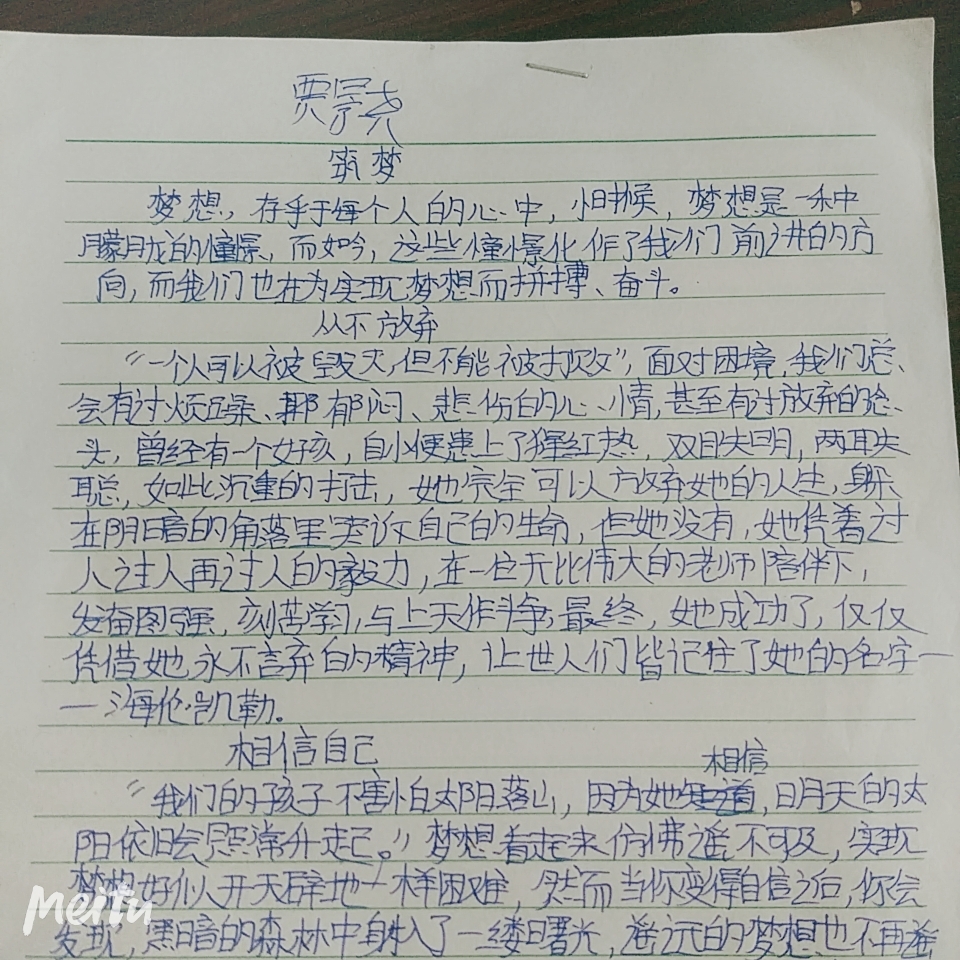 贾景尧
筑梦
梦想，存乎于每个人的心中，旧时候，梦想是一种
朦胧的憧憬，而如今，这些憧憬化作了我们前进的方
向，而我们也在为实现梦想而拼搏、奋斗。
从不放弃
“一个人可以被毁灭，但不能被打败”，面对困境，我们总
会有过烦躁、郁闷、悲伤的心情，甚至有过放弃的念
头，曾经有一个女孩，自小便患上了猩红热，双目失明，两耳失
聪，如此沉重的打击，她完全可以放弃她的人生，躲
在阴暗的角落里哭诉自己的生命，但她没有，她凭着过
人之人再过人的毅力，在一位无比伟大的老师陪伴下，
发奋图强，刻苦学习，与上天作斗争，最终，她成功了，仅仅
凭借她永不言弃的精神，让世人们皆记住了她的名字—
—海伦·凯勒。
相信自己
相信
“我们的孩子不害怕太阳落山，因为她，明天的太
阳依旧会照常升起。”梦想看起来仿佛遥不可及，实现
梦也好似开天辟地一样困难，然而当你变得自信之后，你会
发现，黑暗的森林中射入了一缕曙光，遥远的梦想也不再遥
Meitu